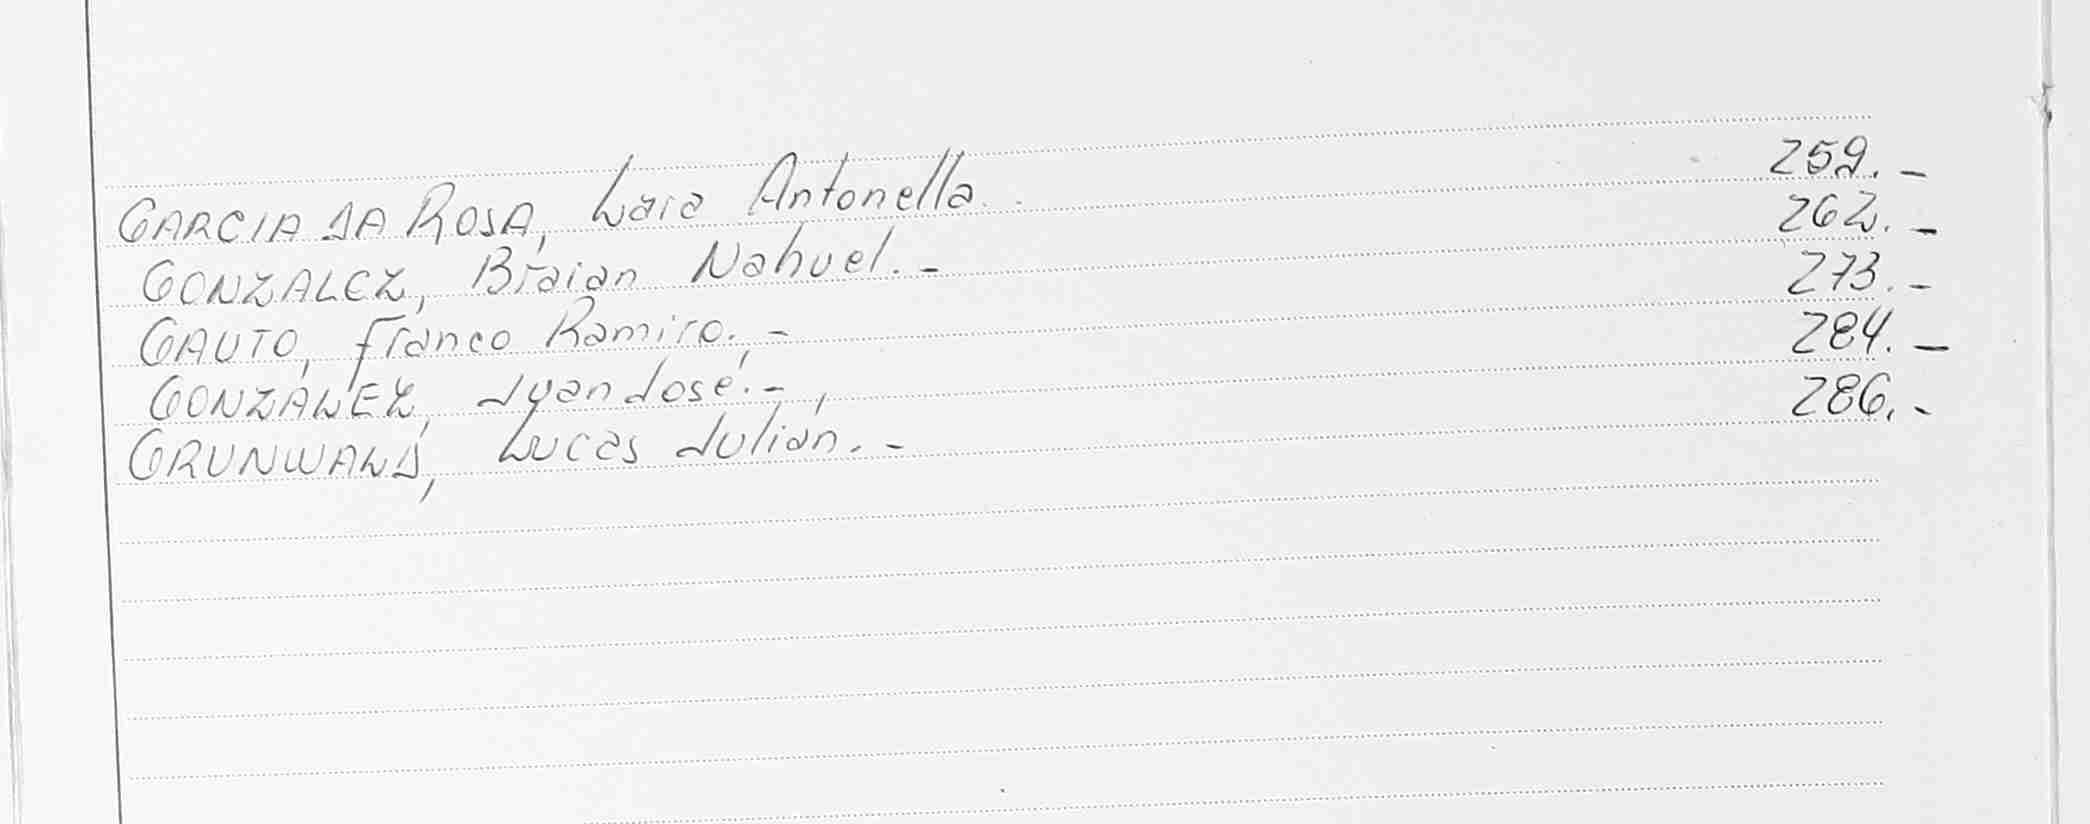 GARCIA DA ROSA, Lara Antonella. 259.-
GONZALEZ, Braian Nahuel.- 262.-
GAUTO, Franco Ramiro.- 273.-
GONZÁLEZ, Juan José.- 284.-
GRUNWALD, Lucas Julián.- 286.-